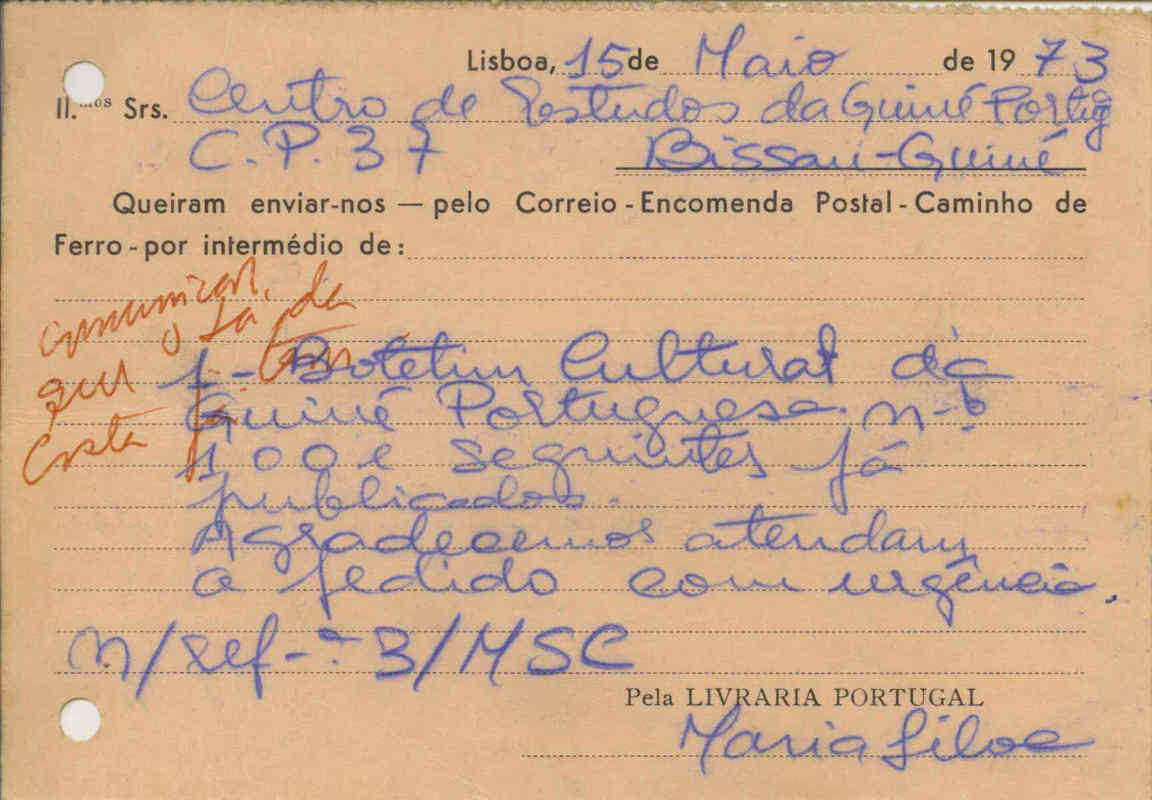 Lisboa, 15 de Maio de 1973
Il.mos Srs. Centro de Estudos da Guiné Portug
C.P. 37 Bissau-Guiné
Queiram enviar-nos — pelo Correio - Encomenda Postal - Caminho de
Ferro - por intermédio de:
comunicar,
que o Sá da
Costa já tem
1 - Boletim Cultural da
Guiné Portuguesa. n-º
100 e seguintes já
publicados.
Agradecemos atendam
o pedido com urgência.
n/ref-ª 3/MSC
Pela LIVRARIA PORTUGAL
Maria Silva